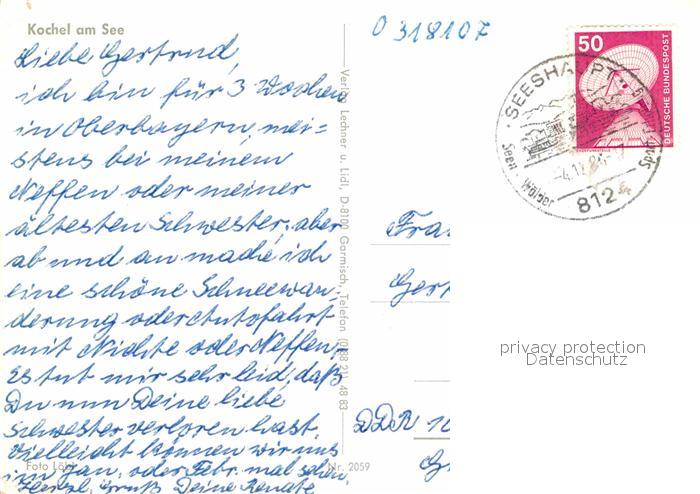 Kochel am See
Liebe Gertrud,
ich bin für 3 Wochen
in Oberbayern, mei=
stens bei meinem
Neffen oder meiner
ältesten Schwester; aber
ab und an mache ich
eine schöne Schneewan=
derung oder Autofahrt
mit Nichte oder Neffen.
Es tut mir sehr leid, daß
Du nun Deine liebe
Schwester verloren hast.
Vielleicht können wir uns
im Jan. oder Febr. mal sehen,
Herzl. Gruß Deine Renate
Foto Löbl
Nr. 2059
Verlag Lechner u. Lidl, D-8100 Garmisch, Telefon (0 88 21) 48 83
O 318107
50
DEUTSCHE BUNDESPOST
SEESHAUPT
Seen
Wälder
Sport
812
Frau
Gert
DDR 10
privacy protection
Datenschutz